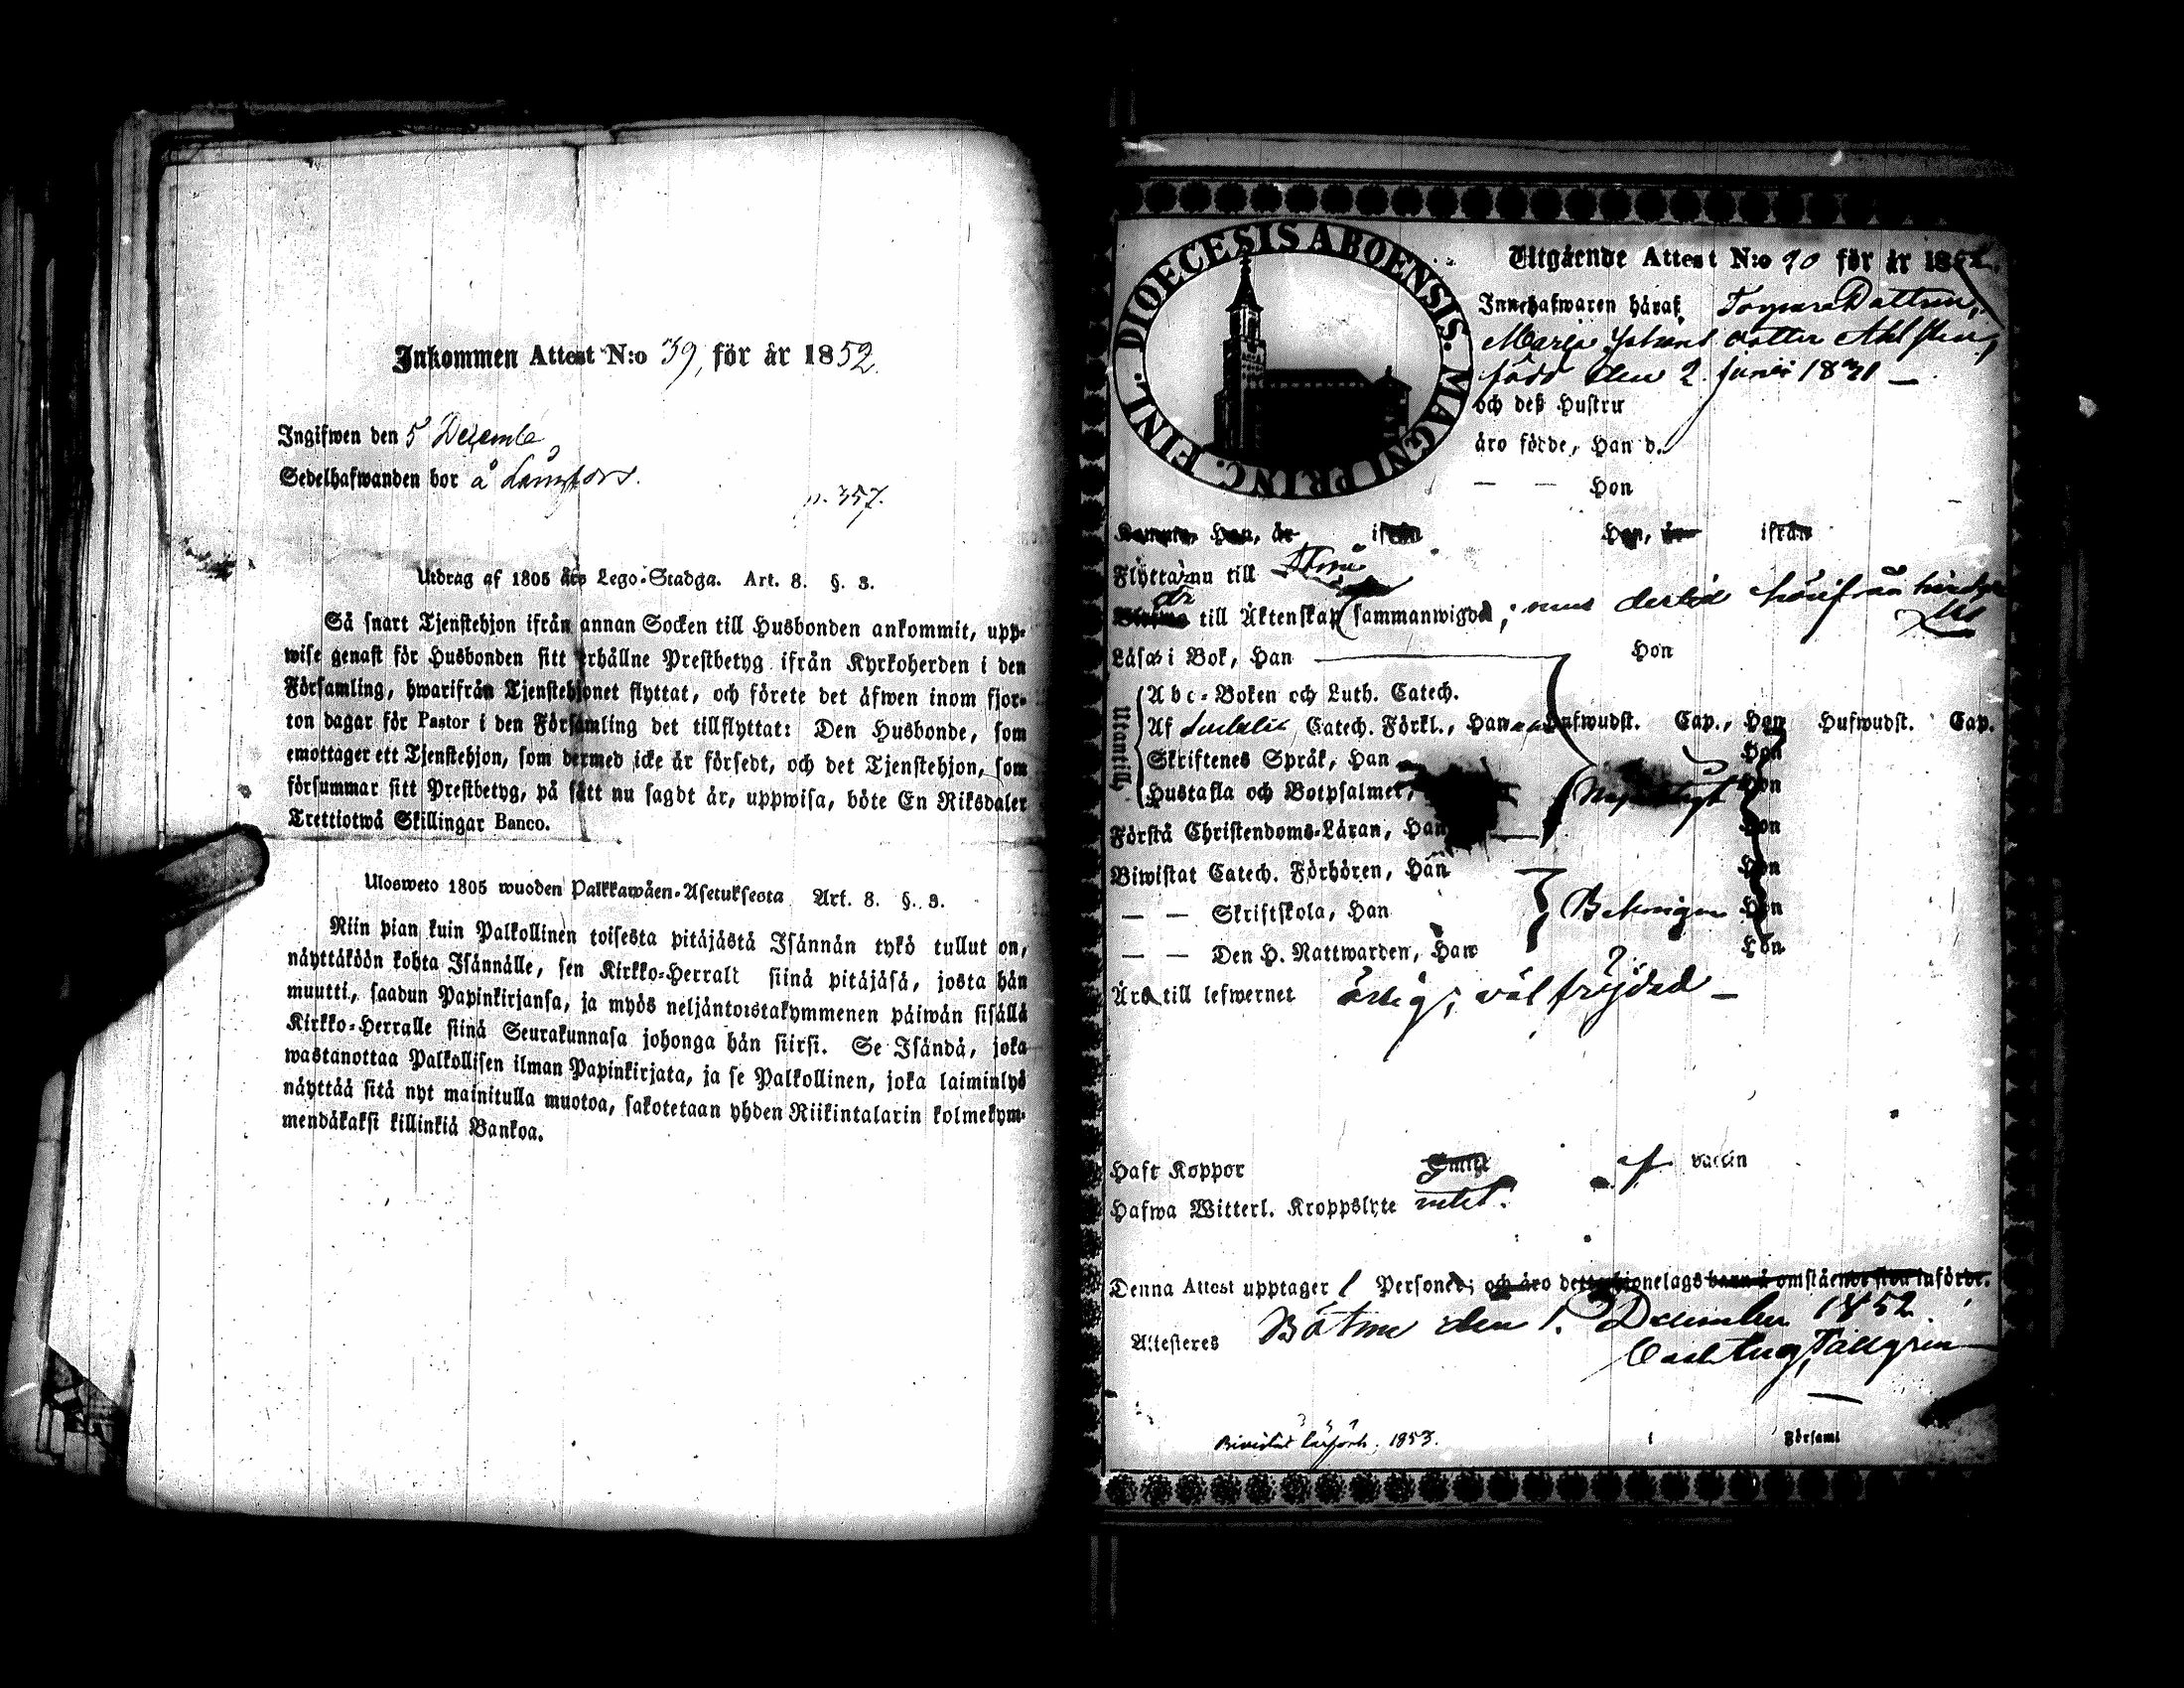 Inkommen Attest N:o 39, för år 1852.
Ingifwen den 5 Decembe
Sedelhafwanden bor å Långfors.
p. 357.
Utdrag af 1805 års Lego-Stadga. Art. 8. §. 3.
Så snart Tjenstehjon ifrån annan Socken till Husbonden ankommit, upp-
wise genast för Husbonden sitt erhållne Prestbetyg ifrån Kyrkoherden i den
Församling, hwarifrån Tjenstehjonet flyttat, och förete det äfwen inom fjor-
ton dagar för Pastor i den Församling det tillflyttat: Den Husbonde, som
emottager ett Tjenstehjon, som dermed icke är försedt, och det Tjenstehjon, som
försummar sitt Prestbetyg, på sätt nu sagdt är, uppwisa, böte En Riksdaler
Trettiotwå Skillingar Banco.
Ulosweto 1805 wuoden Palkkawäen-Asetuksesta Art. 8. §. 3.
Niin pian kuin Palkollinen toisesta pitäjästä Isännän tykö tullut on,
näyttäköön kohta Isännälle, sen Kirkko-Herralt siinä pitäjäsä, josta hän
muutti, saadun Papinkirjansa, ja myös neljäntoistakymmenen päiwän sisällä
Kirkko-Herralle siinä Seurakunnasa johonga hän siirsi. Se Isändä, joka
wastanottaa Palkollisen ilman Papinkirjata, ja se Palkollinen, joka laiminlyö
näyttää sitä nyt mainitulla muotoa, sakotetaan yhden Riikintalarin kolmekym-
mendäkaksi killinkiä Bankoa.
DIOECESIS ABOENSIS. MAGNI PRINC. FINL.
Utgående Attest N:o 90 för år 1852.
Innehafwaren häraf, Torpare Dottren,
Maria Johans dotter Ahlsten,
född den 2 Junii 1831 —
och deß Hustru
äro födde, Han d.
— — Hon
Han, är ifrån Hon, är ifrån
Flyttar nu till
till Äktenskap sammanwigde,
Läsa i Bok, Han Hon
Utantill
Abc-Boken och Luth. Catech.
Af Catech. Förkl., Han Hufwudst. Cap., Hon Hufwudst. Cap.
Skriftenes Språk, Han Hon
Hustafla och Botpsalmer, Hon
Förstå Christendoms-Läran, Han Hon
Biwistat Catech. Förhören, Han Hon
— — Skriftskola, Han Behörigen Hon
— — Den H. Nattwarden, Han Hon
Äro till lefwernet ärlig, väl fräjdad —
Haft Koppor af vaccin
Hafwa Witterl. Kroppslyte intet.
Denna Attest upptager 1 Personer; och äro detta hjonelags barn å omstående sida införde.
Attesteres Bötom den 1. December 1852
Carl Aug. Tallgren
Bivistat läsförh. 1853.
i Församl